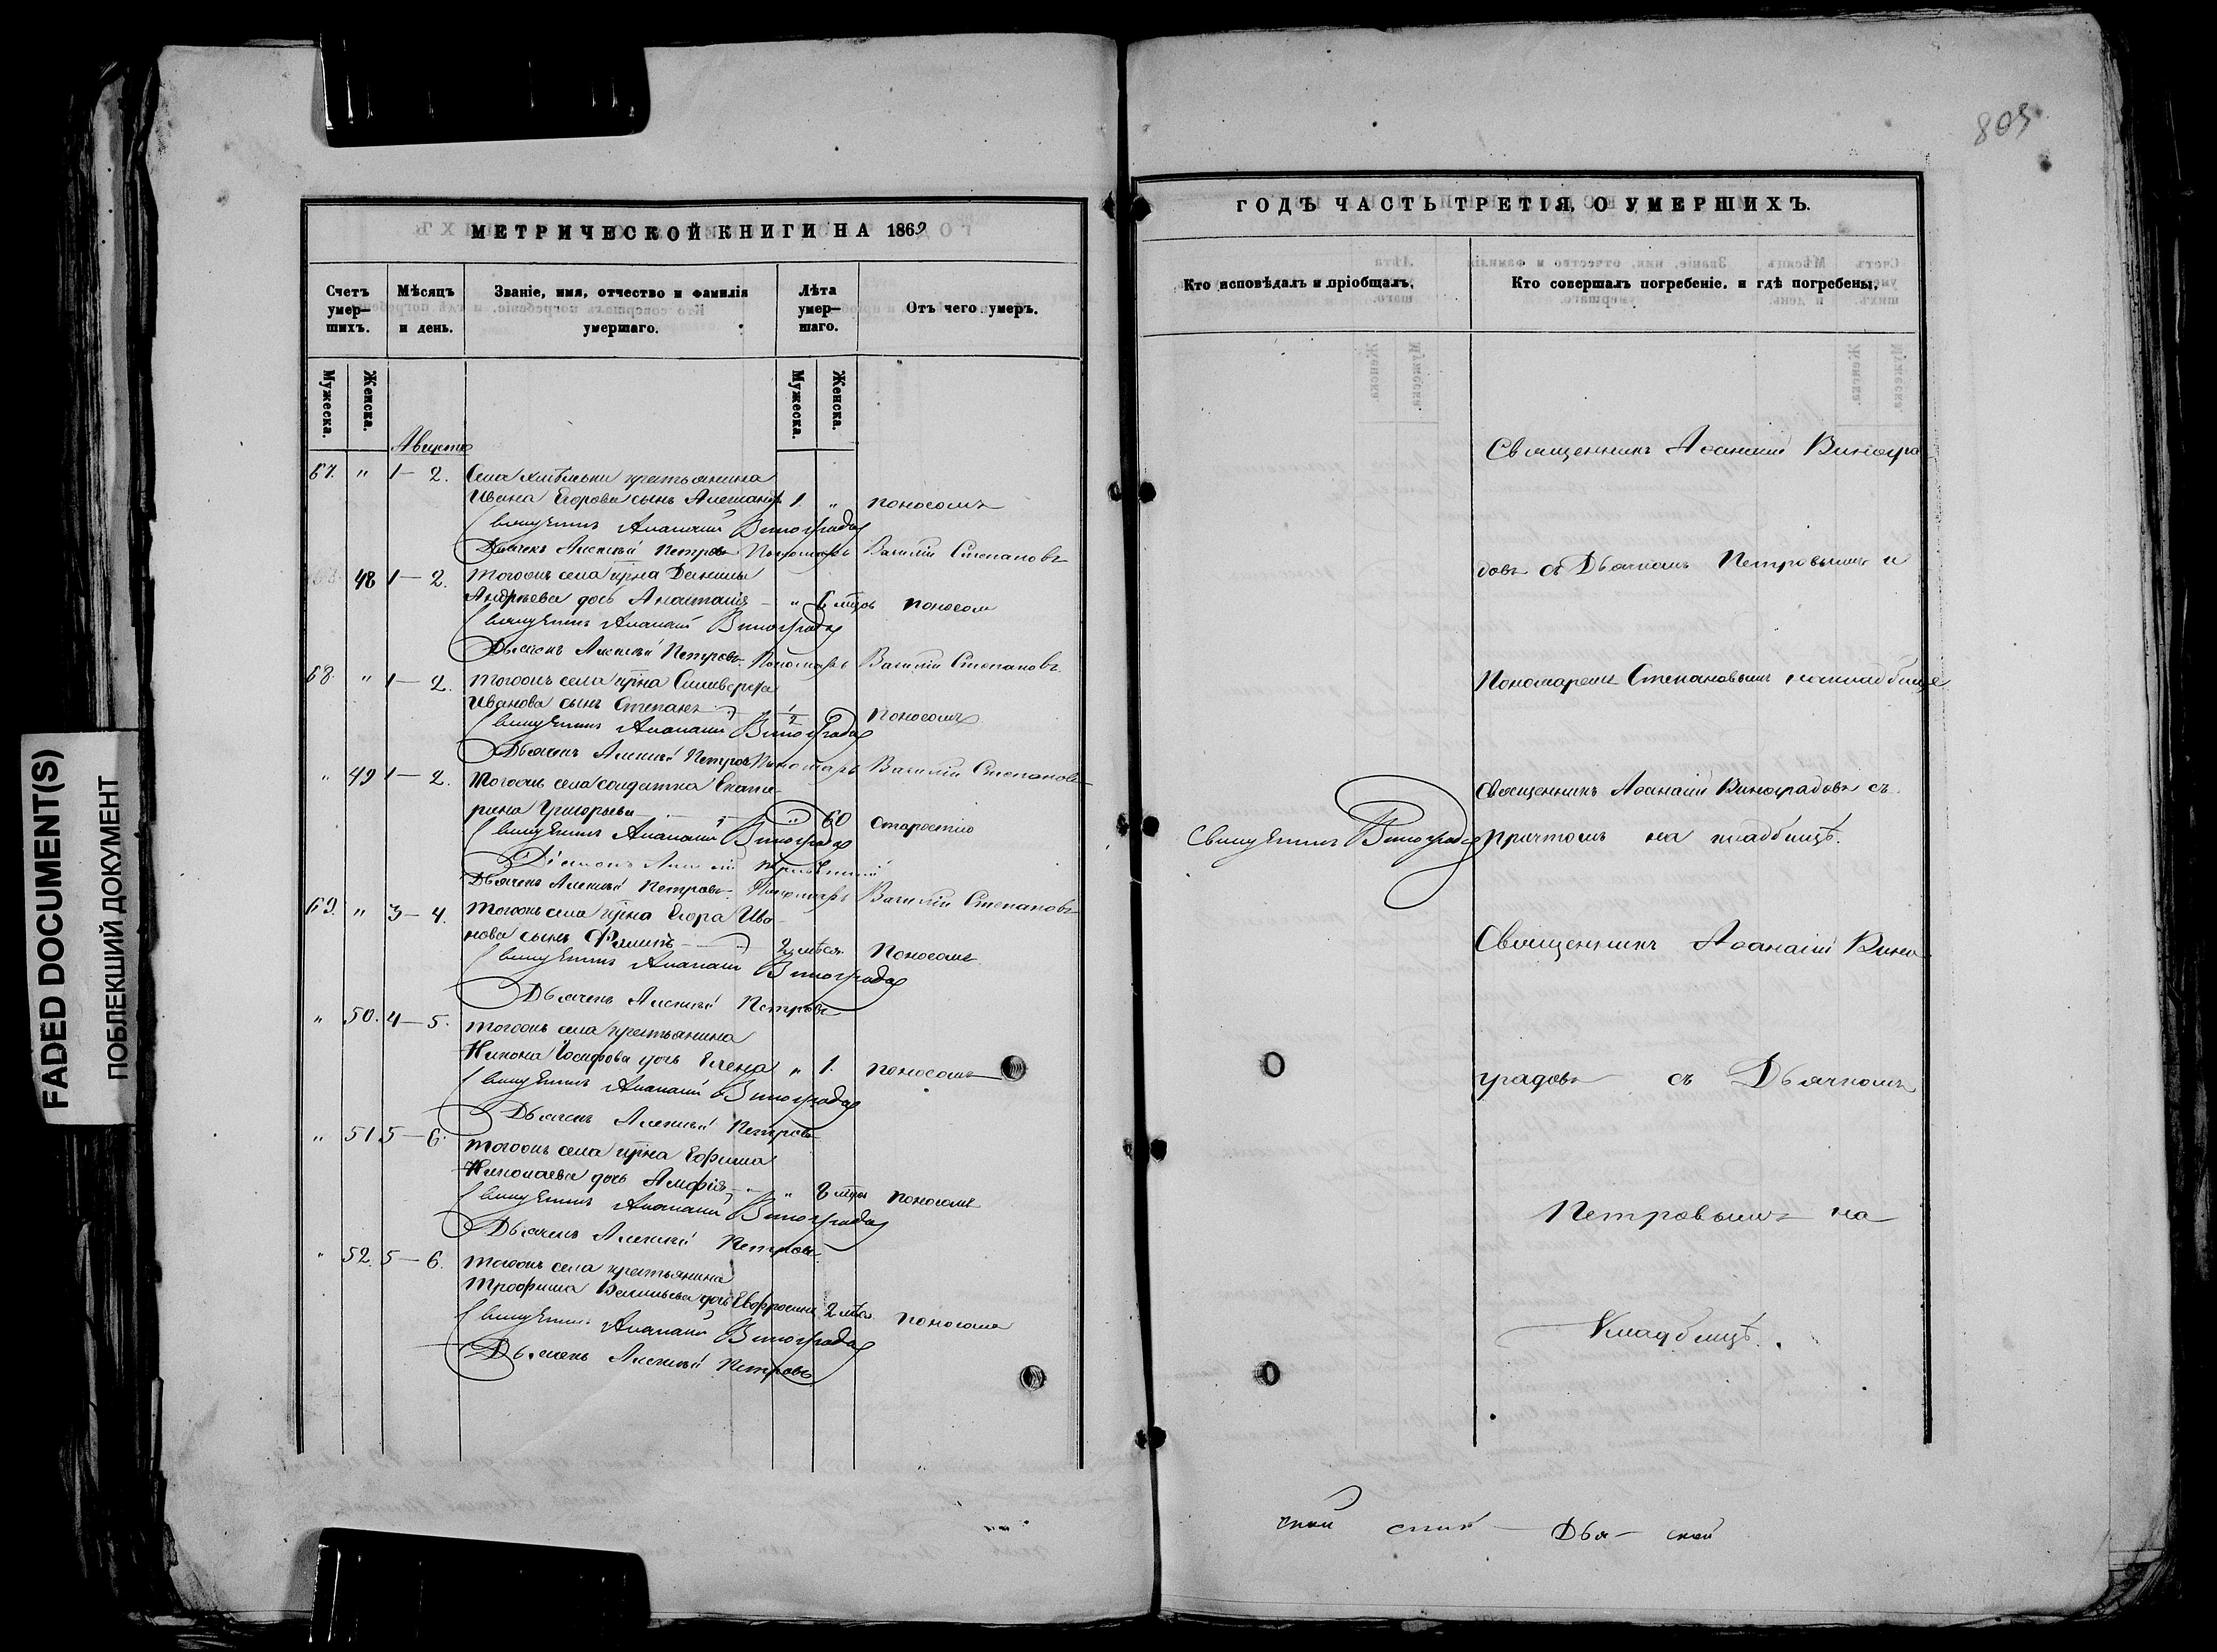 805
FADED DOCUMENT(S)
ПОБЛЕКШИЙ ДОКУМЕНТ
МЕТРИЧЕСКОЙ КНИГИ НА 1869
Счетъ умер—шихъ.
Мѣсяцъ и день.
Званіе, имя, отчество и фамилія умершаго.
Лѣта умер—шаго.
Отъ чего умеръ.
Мужеска.
Женска.
Мужеска.
Женска.
Августъ
67. " 1—2. Села крестьянина
Ивана Егорова сынъ Александръ 1. " поносомъ
Священникъ Афанасій Виноградов
Дьячекъ Алексѣй Петровъ Пономарь Василій Степановъ
48 1—2. Тогожъ села
Андреева дочь Анастасія — " 6 поносом
Священникъ Афанасій Виноградов
Дьячекъ Алексѣй Петровъ Пономарь Василій Степановъ
68. " 1—2. Тогожъ села Сильверста
Иванова сынъ Степанъ 1/2 поносомъ
Священникъ Афанасій Виноградов
Дьячекъ Алексѣй Петровъ Пономарь Василій Степановъ
" 49 1—2. Тогожъ села солдатка Екате-
рина Григорьева " 60 старостію
Священникъ Афанасій Виноградов
Дьячекъ Алексѣй Петровъ Пономарь Василій Степановъ
69. " 3—4. Тогожъ села Егора Ива-
нова сынъ Филипъ — 2 поносомъ
Священникъ Афанасій Виноградов
Дьячекъ Алексѣй Петровъ
" 50. 4—5. Тогожъ села крестьянина
Никона Іосифова дочь Елена " 1. поносомъ
Священникъ Афанасій Виноградов
Дьячекъ Алексѣй Петровъ
" 51 5—6. Тогожъ села Ефима
Николаева дочь " 8 поносомъ
Священникъ Афанасій Виноградов
Дьячекъ Алексѣй Петровъ
" 52. 5—6. Тогожъ села крестьянина
Трофима Васильева дочь Евфросинія 2 поносомъ
Священникъ Афанасій Виноградов
Дьячекъ Алексѣй Петровъ
ГОДЪ ЧАСТЬ ТРЕТІЯ, О УМЕРШИХЪ.
Кто исповѣдалъ и пріобщалъ.
Кто совершалъ погребеніе. и гдѣ погребены.
Священникъ Аѳанасій Виногра
довъ съ Дьячкомъ Петровымъ и
Пономаремъ Степановымъ на кладбищѣ
Священникъ Аѳанасій Виноградовъ съ
Священникъ Виноградов
причтомъ на кладбищѣ.
Священникъ Аѳанасій Вино
градовъ съ Дьячкомъ
Петровымъ на
Кладбищѣ.
Дья—